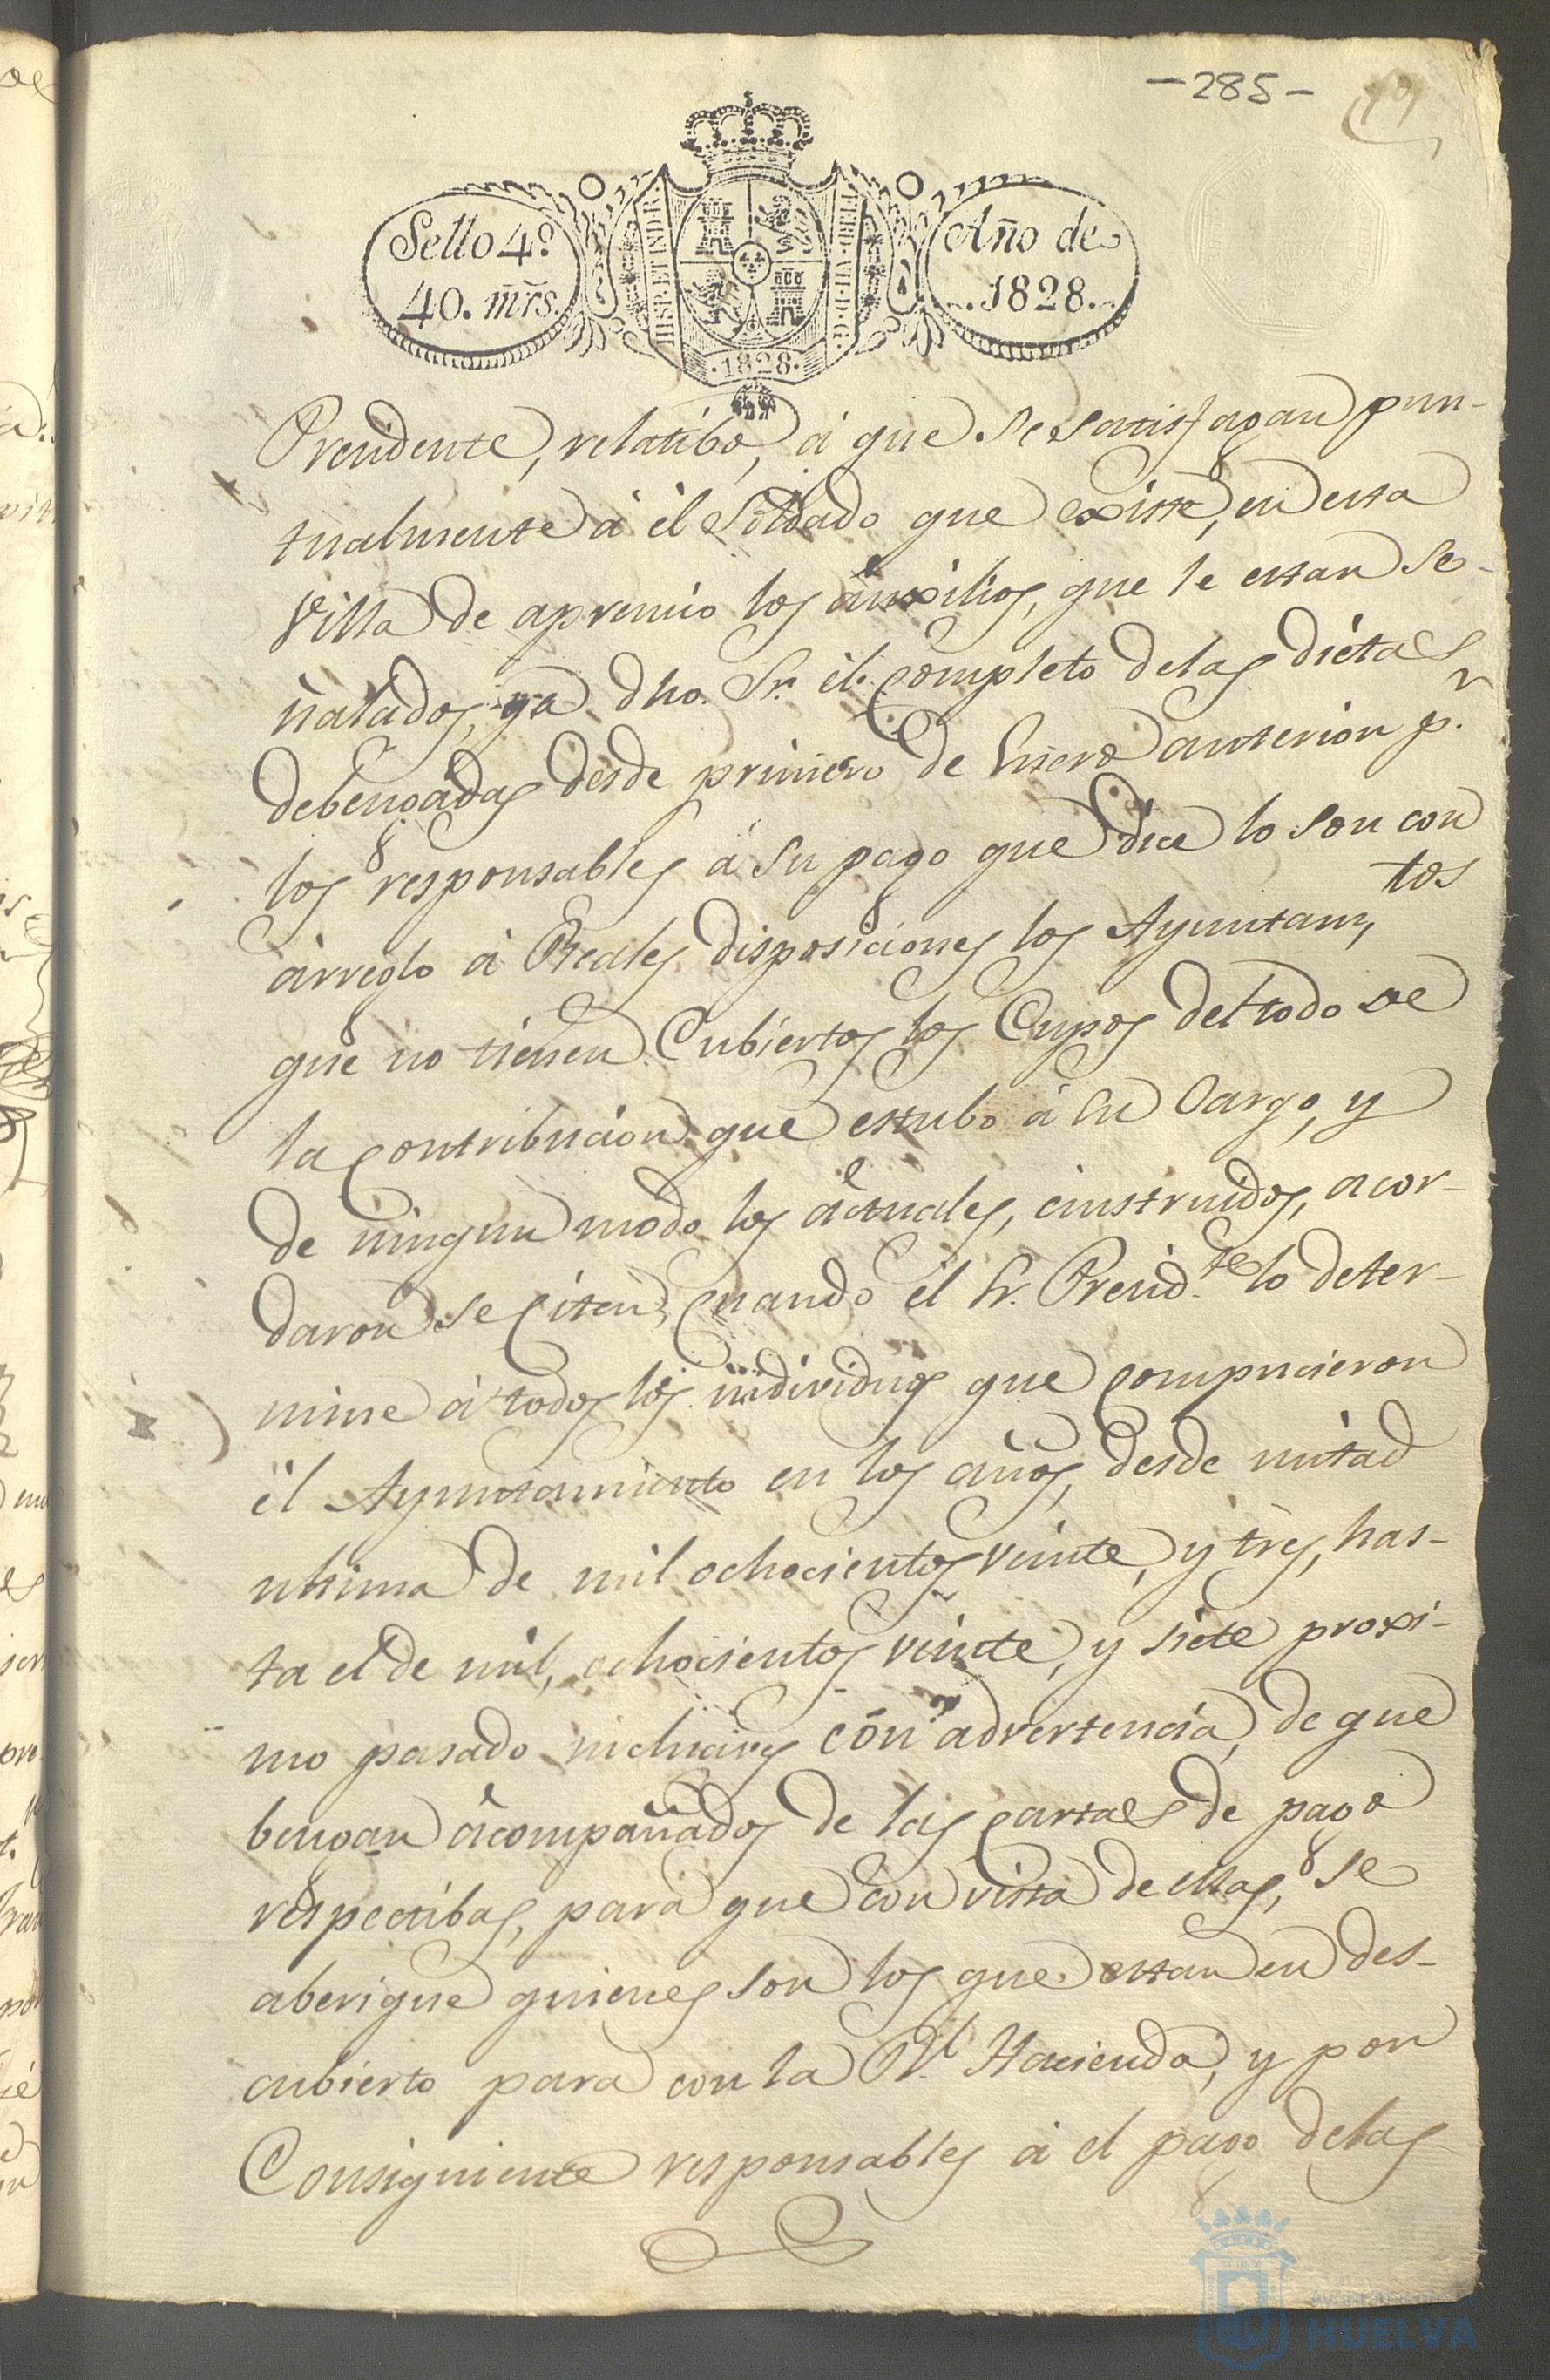 -285-
Sello 4º
40. mrs.
HISP. ET IND. R.
FERD. VII. D. G.
·1828·
Año de
.1828.
Presidente, relatibo, á que se satisfagan pun-
tualmente á él Soldado que existe, en esta
Villa de apremio los auxilios, que le estan se-
ñalados, ya dho. Sr. el completo delas dietas
debengadas desde primero de Enero anterior p.r
los responsables á su pago que dice lo son con
arreglo á Reales disposiciones los Ayuntam,tos
que no tienen Cubiertos los Cupos del todo de
la contribucion que estubo á su Cargo, y
de ningun modo los actuales, einstruidos, acor-
daron se Citen, quando él Sr. Presid.te lo deter-
mine á todos los individuos que compucieron
él Ayuntamiento en los años, desde mitad
ultima de mil ochocientos veinte, y tres, has-
ta el de mil, ochocientos veinte, y siete proxi-
mo pasado inclucive con advertencia, de que
bengan acompañados de las cartas de pago
respectibas, para que con vista de ellas, se
aberigue quienes son los que estan en des-
cubierto para con la Rl. Hacienda, y por
Consiguiente responsables á el pago delas
HUELVA